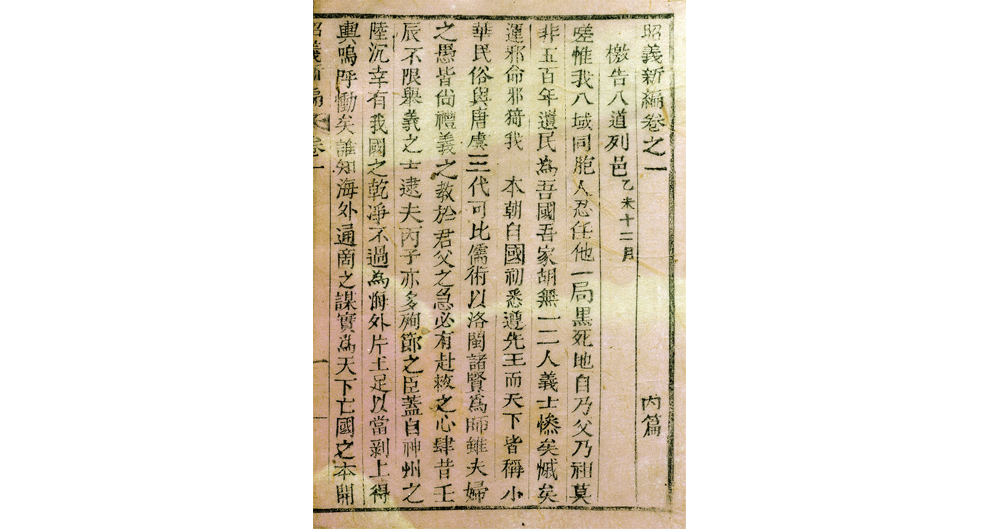 昭義新編卷之一 內篇
檄告八道列邑 乙未十二月
嗟惟我八域同胞人忍任他一局黒死地自乃父乃祖莫
非五百年遺民為吾國吾家胡無一二人義士慘矣慽矣
運邪命邪猗我 本朝自國初悉遵先王而天下皆稱小
華民俗與唐虞三代可比儒術以洛閩諸賢爲師雖夫婦
之愚皆尙禮義之教於君父之急必有赴救之心肆昔壬
辰不限舉義之士逮夫丙子亦多殉節之臣蓋自神州之
陸沉幸有我國之乾淨不過為海外片土足以當剥上得
輿嗚呼慟矣誰知海外通商之謀實爲天下亡國之本開
昭義新編 卷一 一